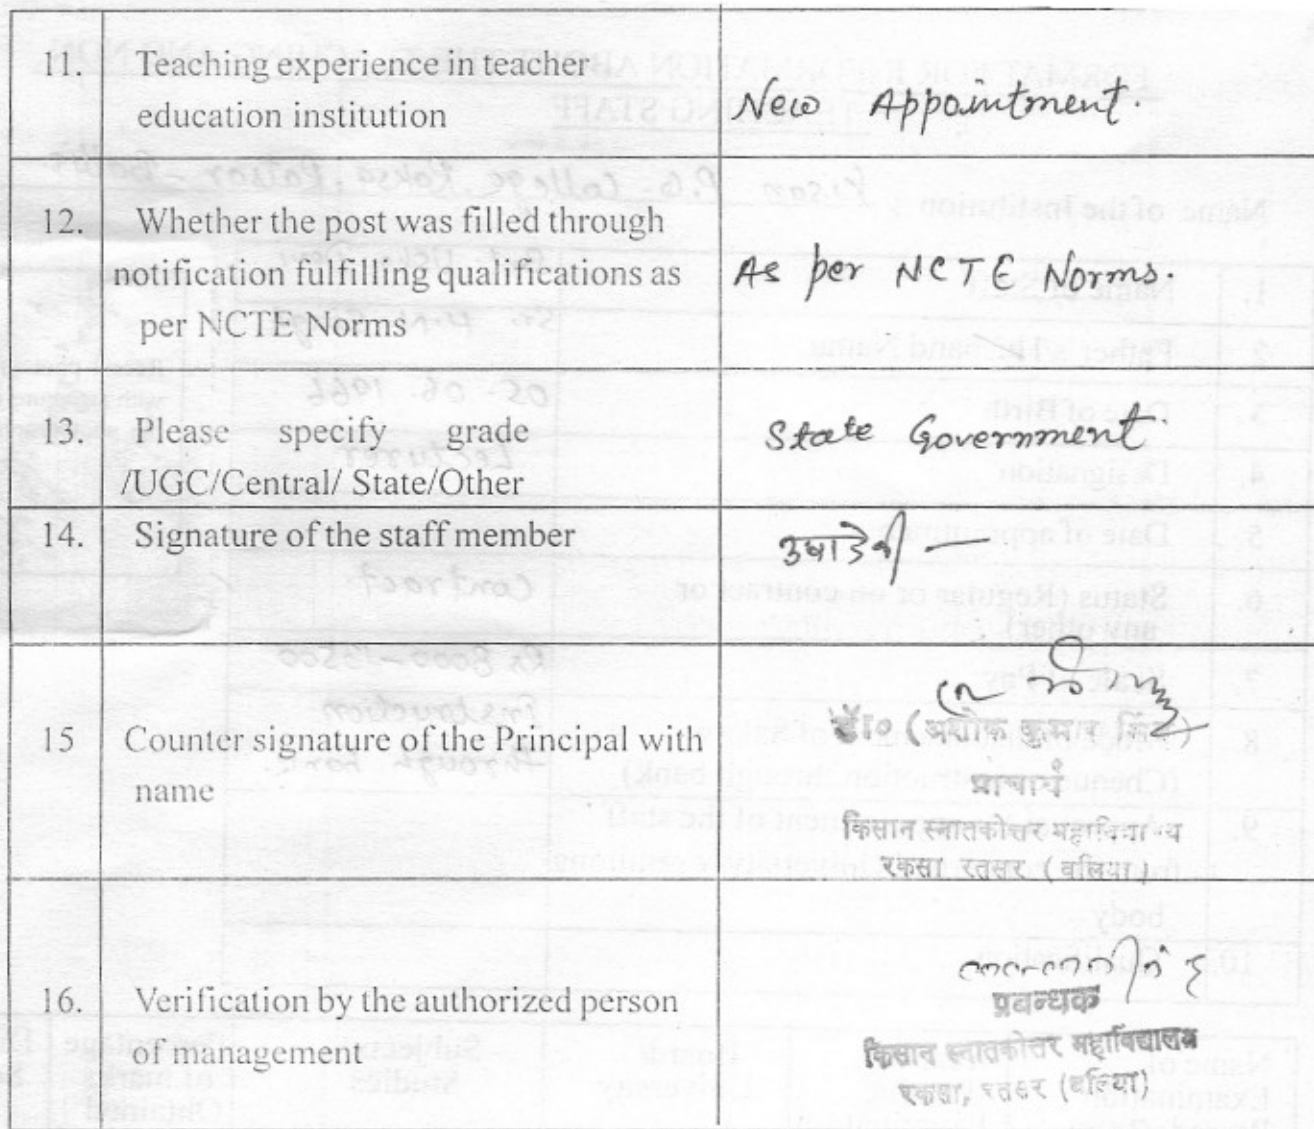 11. Teaching experience in teacher
education institution
New Appointment.
12. Whether the post was filled through
notification fulfilling qualifications as
per NCTE Norms
As per NCTE Norms.
13. Please specify grade
/UGC/Central/ State/Other
State Government
14. Signature of the staff member
उषा देवी
15 Counter signature of the Principal with
name
डॉ० (अशोक कुमार सिंह)
प्राचार्य
किसान स्नातकोत्तर महाविद्यालय
रकसा रतसर (बलिया)
16. Verification by the authorized person
of management
प्रबन्धक
किसान स्नातकोत्तर महाविद्यालय
रकसा, रतसर (बलिया)